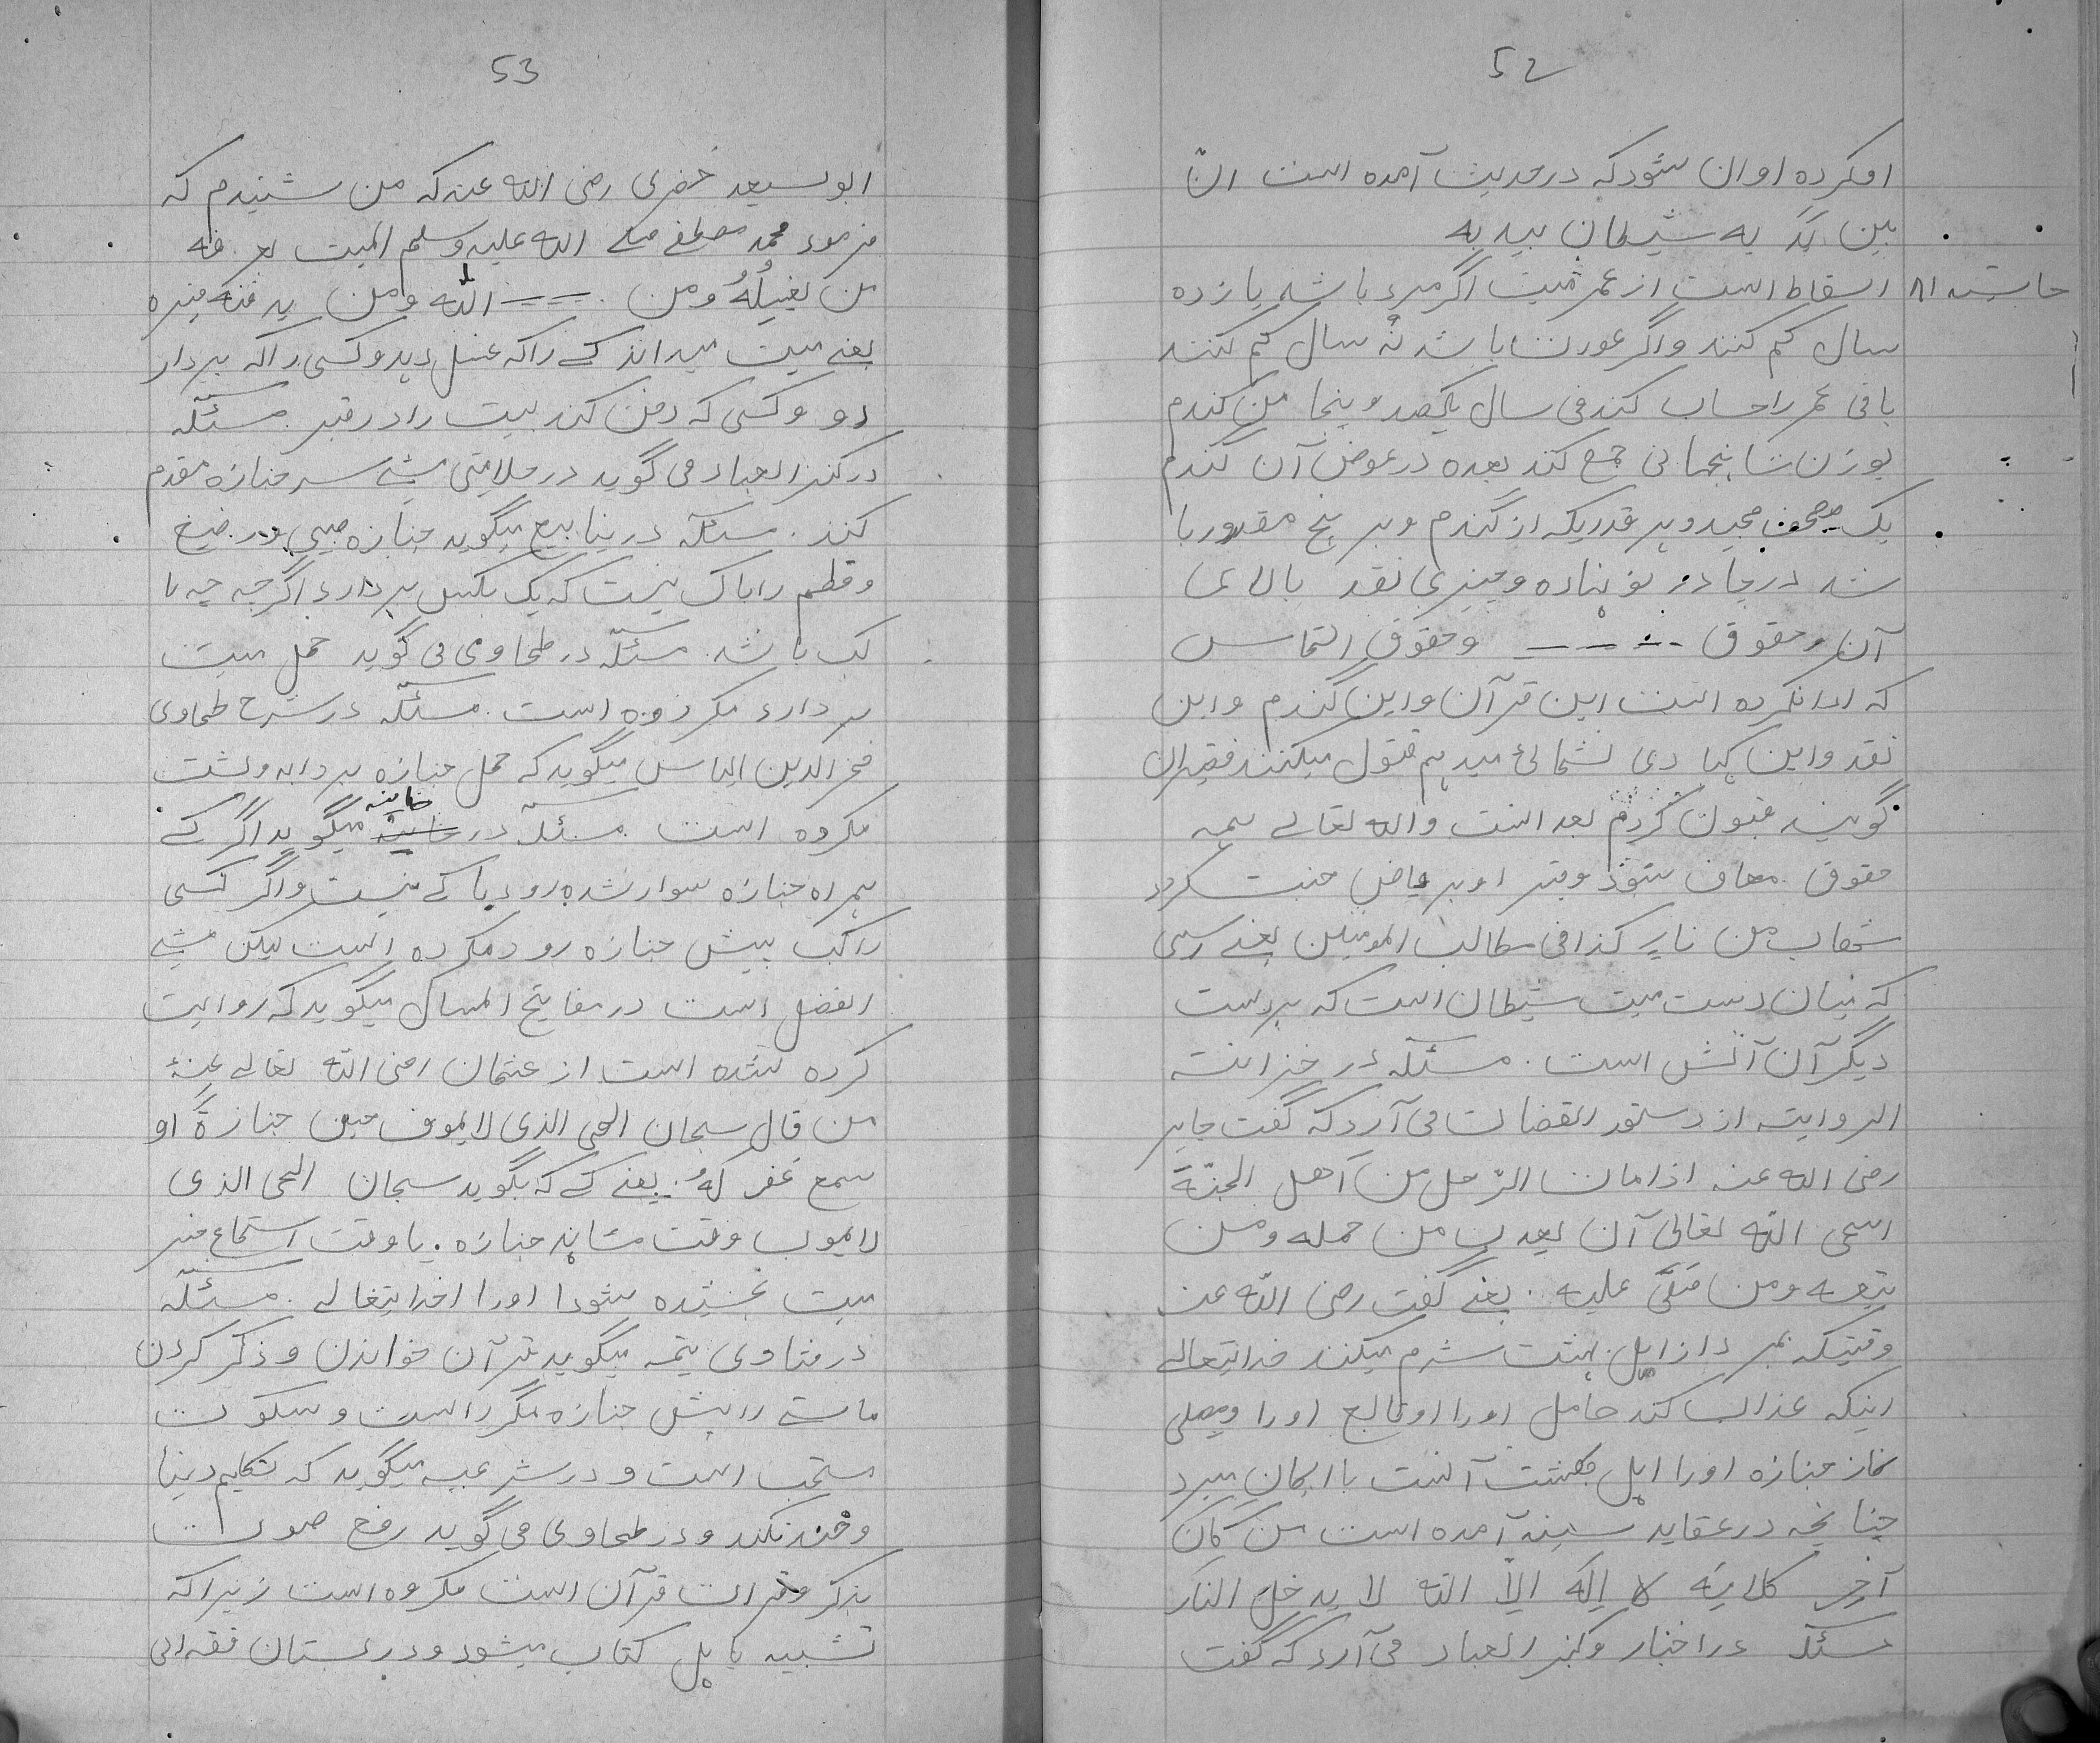 52
او کرده او ان شود که در حدیث آمده است ان
بین ید یه شیطان بید یه
حاشیه ۱۸ اسقاط است از عمر میت اگر مرد باشد یازده
سال کم کنند و اگر عورت باشد نه سال کم کنند
باقی عمر را حساب کند فی سال یکصد و پنجا من گندم
بوزن شاہجہانی جمع کند بعده در عوض آن گندم
یک مصحف مجید و ہر قدریکہ از گندم و برنج مقدور با
شد در چادر نو نہاده و چیزی نقد بالای
آن و حقوق ــ ــ ــ و حقوق التماس
که ادا نکرده است این قرآن و این گندم و این
نقد و این کپا دی بشمائ میدہم قبول میکنند فقیران
گویند قبول کردم بعد است والله تعالے ہمہ
حقوق معاف شود و قبر او بریاض جنت گردد
شهاب من نار کذافی مطالب المومنین یعنے رسی
که میان دست میت شیطان است که بر دست
دیگر آن آتش است. مسئله در خزانته
الروایته از دستور القضات می آرد که گفت جابر
رضی الله عنه اذا مات الرجل من اهل الجنّة
استحی الله تعالی آن یعذب من حمله و من
یتبعه و من صَلّی علیه. یعنے گفت رضی الله عنه
وقتیکه بمیرد از اہل بہشت شرم میکند خدایتعالے
اینکه عذاب کند حامل اورا او تابع اورا و مصلی
نماز جنازه اورا اہل بهشت آنست با ایمان میرد
چنانچہ در عقاید سینہ آمده است من کان
آخر کلامِه لا إله إلا الله لا یدخل النار
مسئلہ در اخبار و کنز العباد می آرد که گفت
53
ابو سعید خضری رضی الله عنه که من شنیدم که
فرمود محمد مصطفے صلے الله علیه وسلم المیت یعرفه
من یغسِلُهُ و من ــ ــ الله و من یدفنه قبره
یعنے میت میداند کسے راکہ غسل دہد و کسی راکہ بردار
دو و کسی کہ دفن کند میت را در قبر. مسئلہ
در کنز العباد می گوید در حلامتی مشے سر جنازه مقدم
کنند. مسئلہ در ینابیع میگوید جنازه صبی و رضیع
و فطیم را باک نیست که یک بکس بردارد اگرچہ چہ را
کب باشد. مسئلہ در طحاوی می گوید حمل میت
بردارد مکروه است. مسئلہ در شرح طحاوی
فخر الدین الیاس میگوید که حمل جنازه بر دابہ و پشت
مکروه است مسئلہ در خانیہ میگوید اگر کسے
ہمراه جنازه سوار شده رود باکے نیست و اگر کسی
راکب پیش جنازه رود مکروه است لیکن مشے
افضل است در مفاتیح المسال میگوید که روایت
کرده شده است از عثمان رضی الله تعالے عنهُ
من قال سبحان الحی الذی لا یموت حین جنازةً او
سمع غفر لهُ. یعنے کسے که بگوید سبحان الحی الذی
لا یموت وقت مشاہد جنازه. یا وقت استماع خبر
میت بخشیده شود اورا خدایتعالے. مسئلہ
در فتاوی یتمہ میگوید قرآن خواندن و ذکر کردن
ماشے را پیش جنازه مکروه است و سکوت
مستحب است و در شرعیہ میگوید که تکلیم دنیا
و خنده نکند و در طحاوی می گوید رفع صوت
بذکر و قرات قرآن است مکروه است زیراکہ
تشبیه باہل کتاب میشود و در بستان فقہ الی